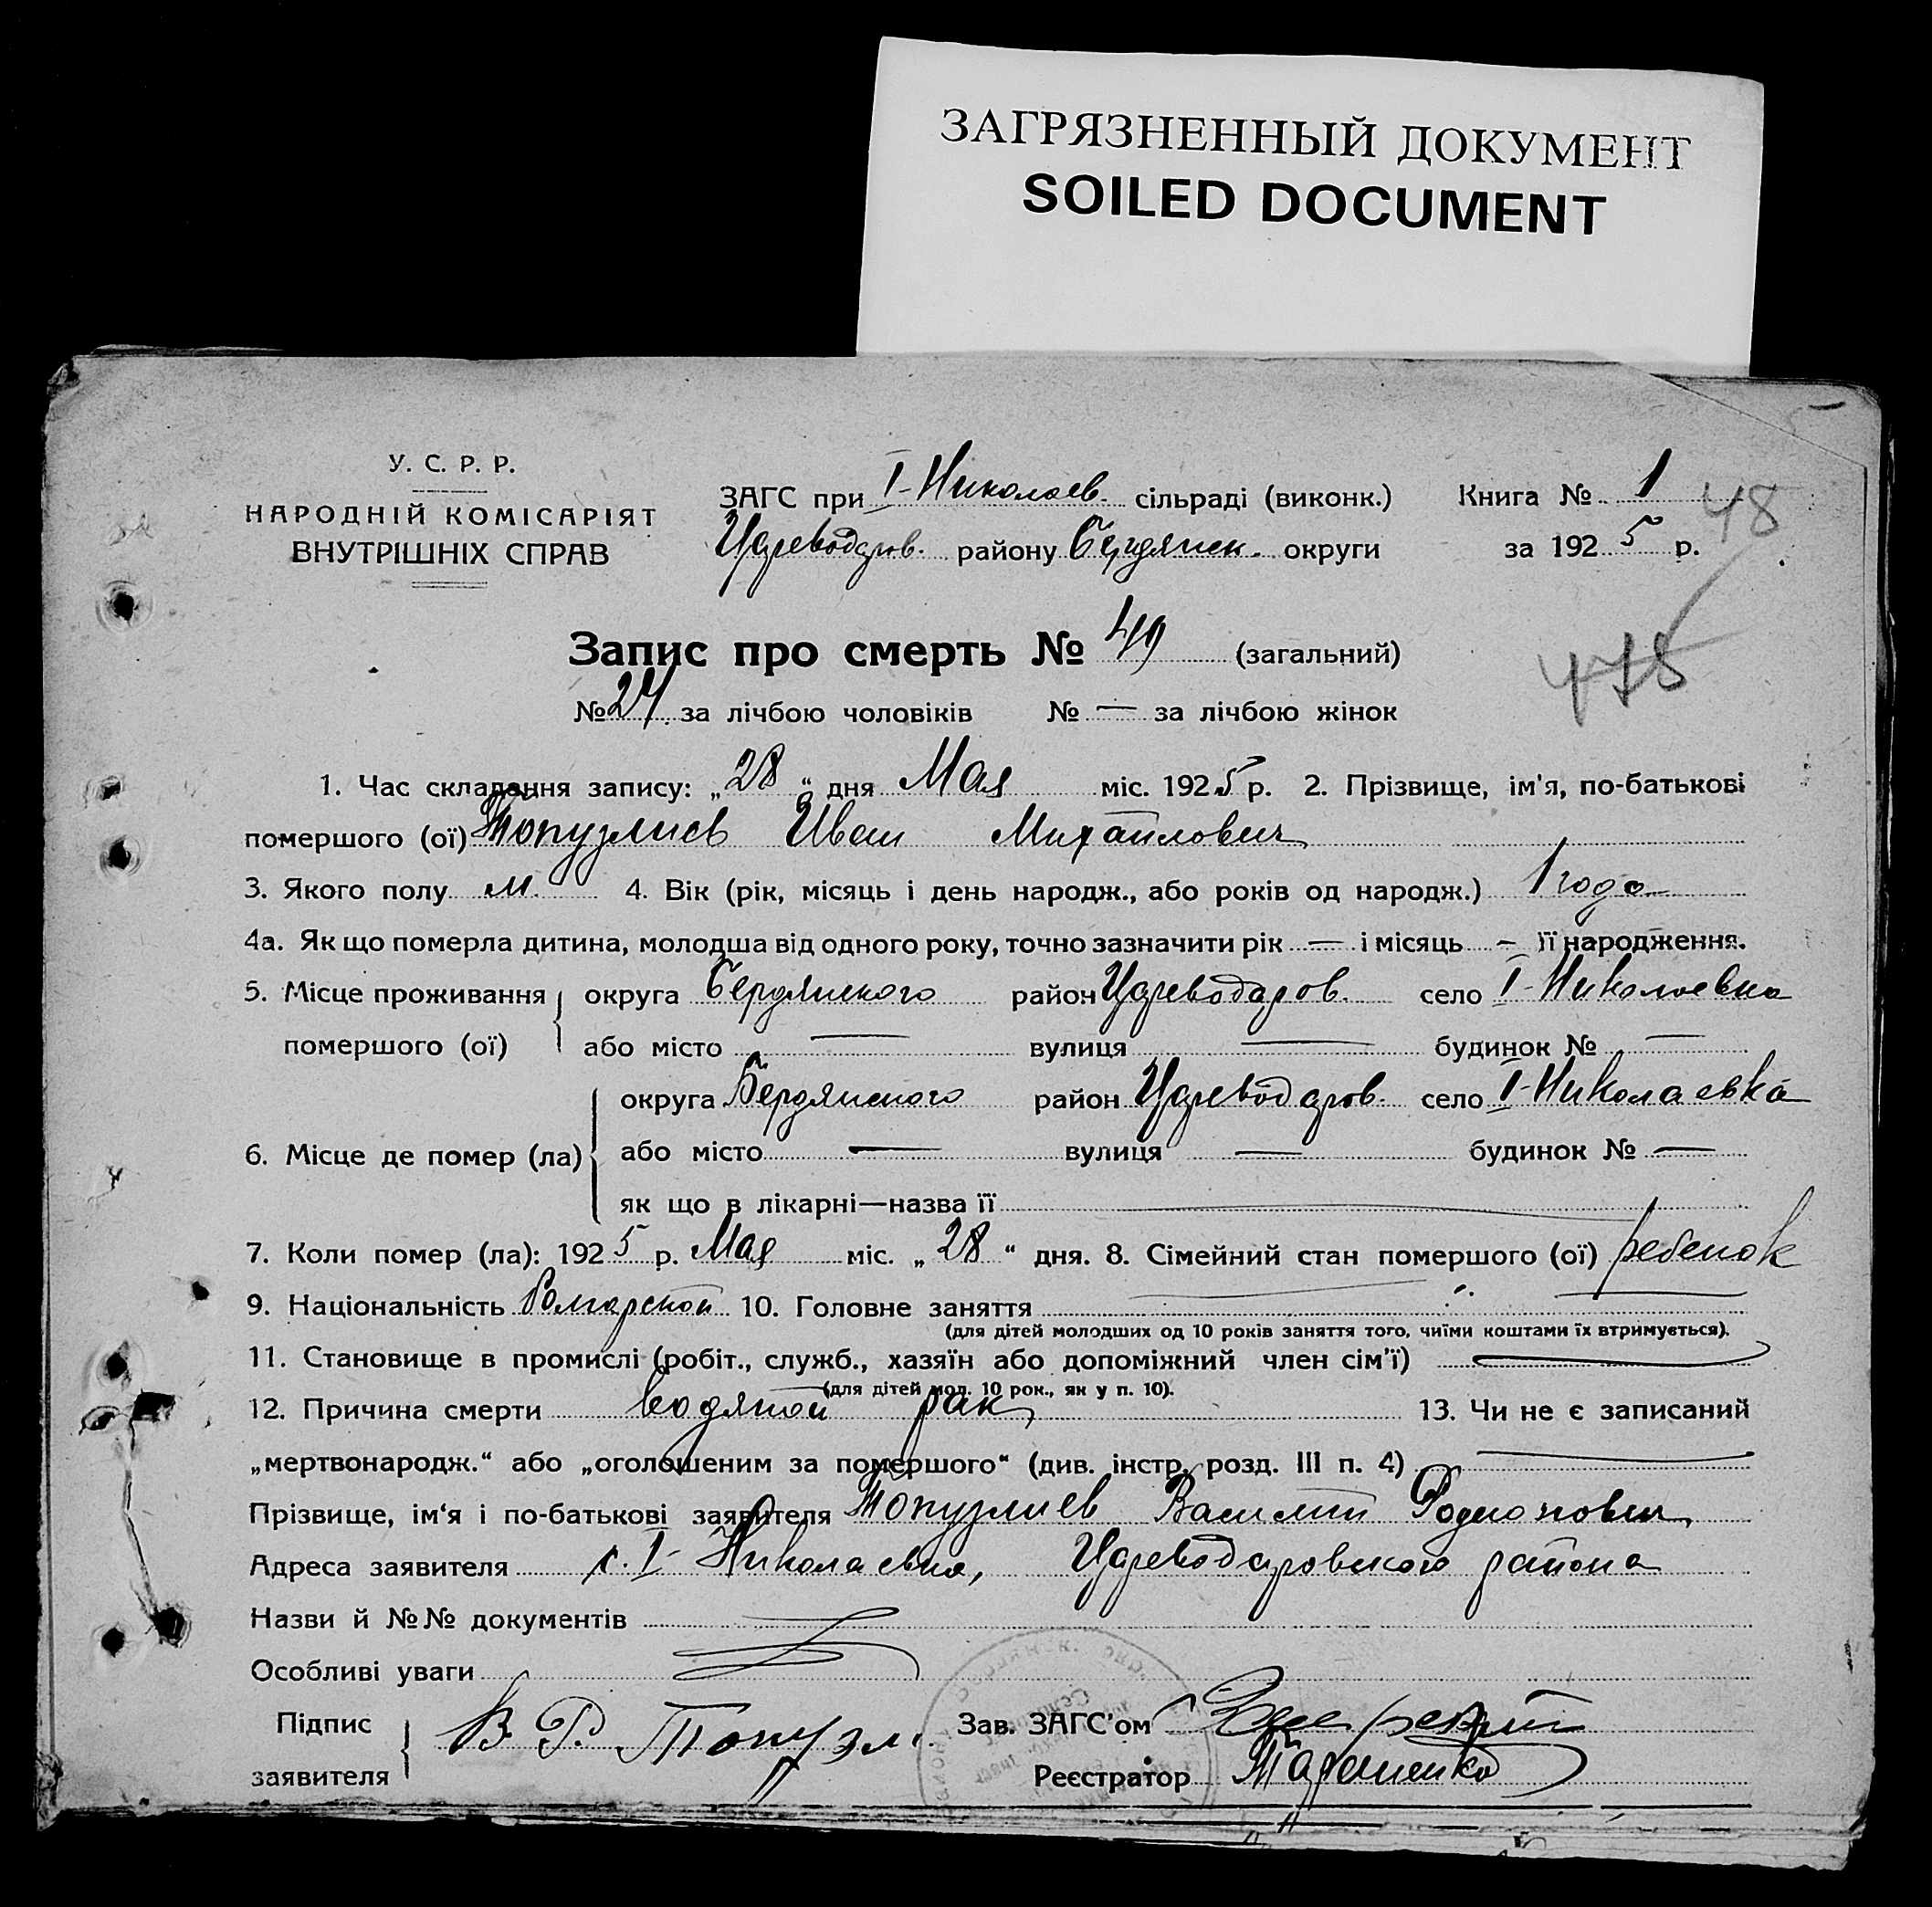 ЗАГРЯЗНЕННЫЙ ДОКУМЕНТ
SOILED DOCUMENT
У. С. Р. Р.
НАРОДНІЙ КОМІСАРІЯТ
ВНУТРІШНІХ СПРАВ
ЗАГС при I-Николаев. сільраді (виконк.)
Цареводаров. району Бердянск. округи
Книга № 1
за 1925 р.
48
478
Запис про смерть № 49 (загальний)
№ 24 за лічбою чоловіків № — за лічбою жінок
1. Час складання запису: „28“ дня Мая міс. 1925 р. 2. Прізвище, ім'я, по-батькові
помершого (ої) Топузлиев Иван Михайлович
3. Якого полу м. 4. Вік (рік, місяць і день народж., або років од народж.) 1 года
4а. Як що померла дитина, молодша від одного року, точно зазначити рік — і місяць — її народження.
5. Місце проживання округа Бердянского район Цареводаров. село I-Николаевка
помершого (ої) або місто — вулиця — будинок № —
округа Бердянского район Цареводаров. село I-Николаевка
6. Місце де помер (ла) або місто — вулиця — будинок № —
як що в лікарні—назва її —
7. Коли помер (ла): 1925 р. Мая міс. „28“ дня. 8. Сімейний стан помершого (ої) ребенок
9. Національність болгарской 10. Головне заняття —
(для дітей молодших од 10 років заняття того, чиїми коштами їх втримується).
11. Становище в промислі (робіт., служб., хазяїн або допоміжний член сім'ї) —
(для дітей мол. 10 рок., як у п. 10).
12. Причина смерти водяной рак 13. Чи не є записаний
„мертвонародж.“ або „оголошеним за помершого“ (див. інстр. розд. III п. 4) —
Прізвище, ім'я і по-батькові заявителя Топузлиев Василий Родионович
Адреса заявителя с. I-Николаевка, Цареводаровского района
Назви й №№ документів
Особливі уваги
Підпис заявителя В Р Топузл.
Зав. ЗАГС'ом
Реєстратор